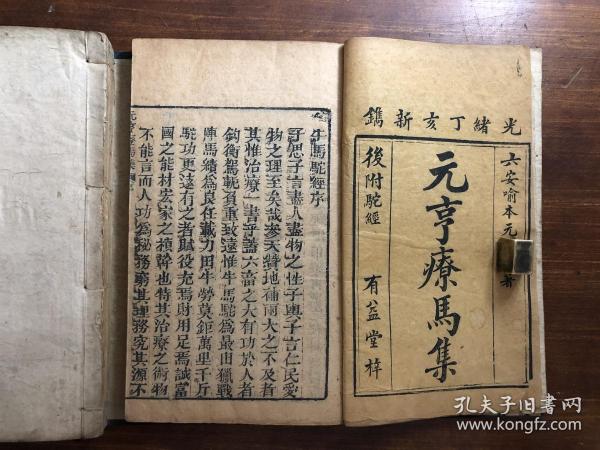 光緒丁亥新鐫
六安喻本元
著
元亨療馬集
後附駝經
有益堂梓
牛馬駝經序
子思子言盡人盡物之性子輿子言仁民愛
物之理至矣哉參天贊地補兩大之不及者
其惟治療一書乎蓋六畜之大有功於人者
鈞衡駕軶負重致遠惟牛馬駝為最由獵戰
陣馬績為良任載力田牛勞莫鉅萬里千斤
駝功更遠有之者賦役充焉財用足焉誠當
國之能材宏家之
也特其治療之術物
不能言而人功為秘務窮其理務究其源不
孔夫子旧书网
www.kongfz.com